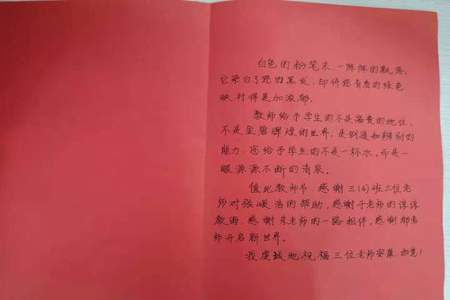 白色的粉笔末一阵阵的飘落,
它染白了您的黑发,却将您青春的绿色
映衬得更加浓郁。
教师给予学生的不是富贵的地位,
不是金碧辉煌的世界,是创造和辨别的
能力。它给予学生的不是一杯水,而是一
眼源源不断的清泉。
值此教师节,感谢三(6)班三位老
师对张峻浩的帮助,感谢于老师的谆谆
教诲,感谢老师的一路相伴,感谢老
师开启新世界。
我虔诚地祝福三位老师安康、如意!